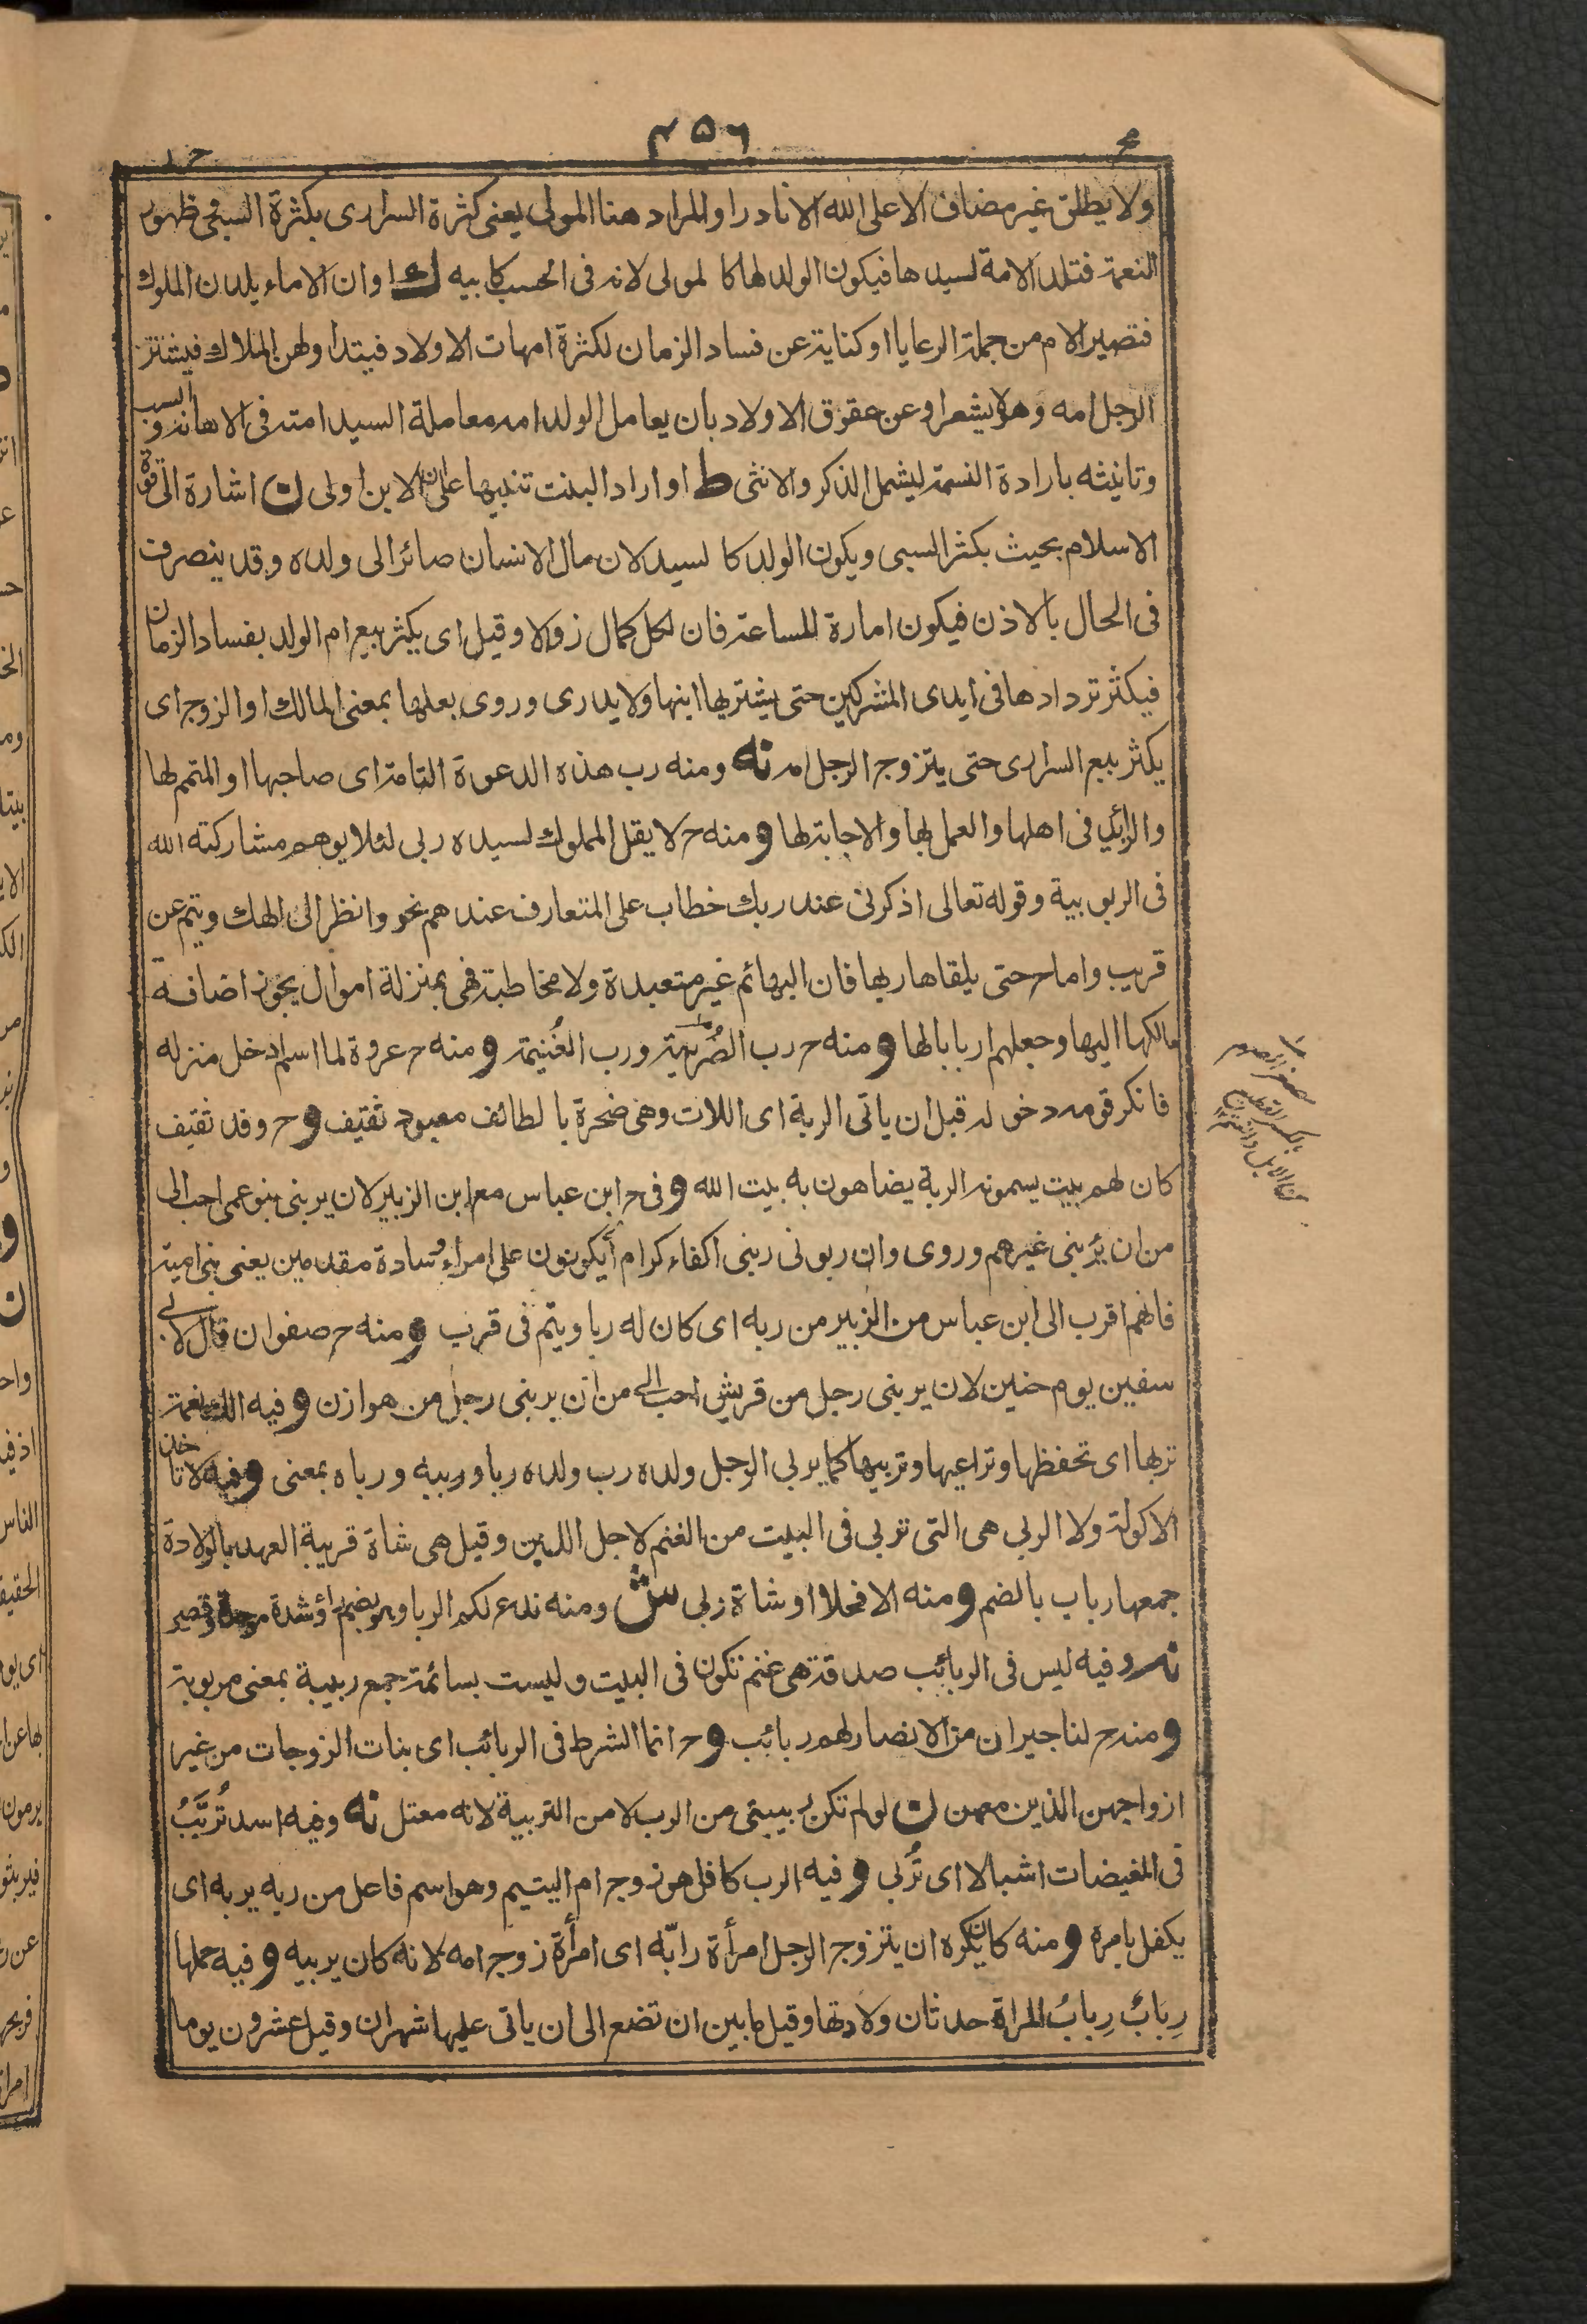 ٤٥٦
ولا يطلق غير مضاف الا على الله الا نادرا والمراد هنا المولى يعنى كثرة السرارى بكثرة السبى وظهور
النعمة فتلد الامة لسيدها فيكون الولد لها كالمولى لانه فى الحسب كابيه ك اوان الاماء يلدن الملوك
فتصير الام من جملة الرعايا او كناية عن فساد الزمان لكثرة امهات الاولاد فيبتداولهن الملاك فيشترى
الرجل امه وهو لا يشعر او عن عقوق الاولاد بان يعامل الولد امه معاملة السيد امته فى الاهانة والسب
وتانيثه بارادة النسمة ليشمل الذكر والانثى ط او اراد البنت تنبيها على ان الابن اولى ن اشارة الى قوة
الاسلام بحيث يكثر السبى ويكون الولد كالسيد لان مال الانسان صائر الى ولده وقد يتصرف
فى الحال بالاذن فيكون امارة للساعة فان لكل كمال زوالا وقيل اى يكثر بيع ام الولد بفساد الزمان
فيكثر تردادها فى ايدى المشركين حتى يشتريها ابنها ولا يدرى وروى بعلها بمعنى المالك او الزوج اى
يكثر بيع السرارى حتى يتزوج الرجل امه نه ومنه رب هذه الدعوة التامة اى صاحبها او المتمم لها
والزائد فى اهلها والعمل بها والاجابة لها و منه ح لا يقل المملوك لسيده ربى لئلا يوهم مشاركته الله
فى الربوبية وقوله تعالى اذكرنى عند ربك خطاب على المتعارف عندهم نحو وانظر الى الهك ويتم عن
قريب واما ح حتى يلقاها ربها فان البهائم غير متعبدة ولا مخاطبة فهى بمنزلة اموال يجوز اضافة
مالكها اليها وجعلهم اربابا لها و منه ح رب الصُّرَيمة ورب الغُنيمة و منه ح عروة لما اسلم دخل منزله
فانكر قومه دخوله قبل ان ياتى الربة اى اللات وهى صخرة بالطائف معبود ثقيف و ح وفد ثقيف
كان لهم بيت يسمونه الربة يضاهون به بيت الله و فى ح ابن عباس مع ابن الزبير لان يربنى بنو عمى احب الى
من ان يَرُبنى غيرهم وروى وان ربونى ربنى اكفاء كرام اى يكونون على امراء وسادة مقدمين يعنى بنى امية
فانهم اقرب الى ابن عباس من الزبير من ربه اى كان له ربا ويتم فى قرب و منه ح صفوان قال لابى
سفين يوم حنين لان يربنى رجل من قريش احب الى من ان يربنى رجل من هوازن و فيه الك نعمة
تربها اى تحفظها وتراعيها وتربيها كما يربى الرجل ولده رب ولده ربا وربيه ورباه بمعنى و فيه لا تاخذ
الاكولة ولا الربى هى التى تربى فى البيت من الغنم لاجل اللبن وقيل هى شاة قريبة العهد بالولادة
جمعها رباب بالضم و منه الا فحلا او شاة ربى ش ومنه ندع لكم الربا وهو بضم راء وشدة موحدة وقصر
نه وفيه ليس فى الربائب صدقة هى غنم تكون فى البيت وليست بسائمة جمع ربيبة بمعنى مربوبة
و منه ح لنا جيران من الانصار لهم ربائب و ح انما الشرط فى الربائب اى بنات الزوجات من غير
ازواجهن الذين معهن ن لو لم تكن ربيبتى من الرب لا من التربية لانه معتل نه وفيه اسد تُربَّبُ
فى الغيضات اشبالا اى تُربى و فيه الرب كافل هو زوج ام اليتيم وهو اسم فاعل من ربه يربه اى
يكفل بامره و منه كان يكره ان يتزوج الرجل امرأة رابّه اى امرأة زوج امه لانه كان يربيه و فيه حملها
رِبابٌ رِبابُ المراة حدثان ولادتها وقيل ما بين ان تضع الى ان ياتى عليها شهران وقيل عشرون يوما